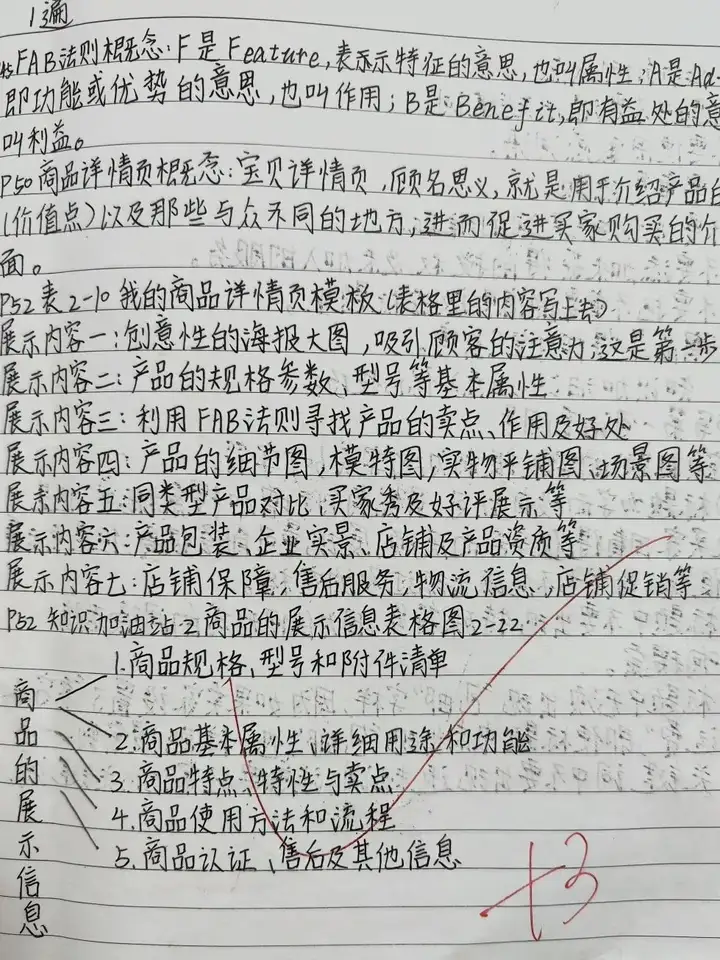 1遍
FAB法则概念:F是Feature,表示示特征的意思,也叫属性;A是Ad-
即功能或优势的意思,也叫作用;B是Benefit,即有益处的意
叫利益。
P50商品详情页概念:宝贝详情页,顾名思义,就是用于介绍产品
(价值点)以及那些与众不同的地方,进而促进买家购买的介
面。
P52表2-10我的商品详情页模板(表格里的内容写上去)
展示内容一:创意性的海报大图,吸引顾客的注意力,这是第一步
展示内容二:产品的规格参数、型号等基本属性
展示内容三:利用FAB法则寻找产品的卖点、作用及好处
展示内容四:产品的细节图,模特图,实物平铺图、场景图等
展示内容五:同类型产品对比、买家秀及好评展示等
展示内容六:产品包装、企业实景、店铺及产品资质等
展示内容七:店铺保障,售后服务,物流信息,店铺促销等
P52知识加油站2商品的展示信息表格图2-22
商品的展示信息
1.商品规格、型号和附件清单
2.商品基本属性、详细用途和功能
3.商品特点、特性与卖点
4.商品使用方法和流程
5.商品认证、售后及其他信息
+3